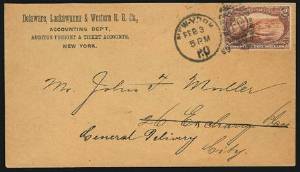 Delaware, Lackawanna & Western R. R. Co.,
ACCOUNTING DEPT.,
AUDITOR FREIGHT & TICKET ACCOUNTS,
NEW YORK.
NEW-YORK
FEB 3
5 PM
Mr. John F.
26 Exchange Place
General Delivery
City.